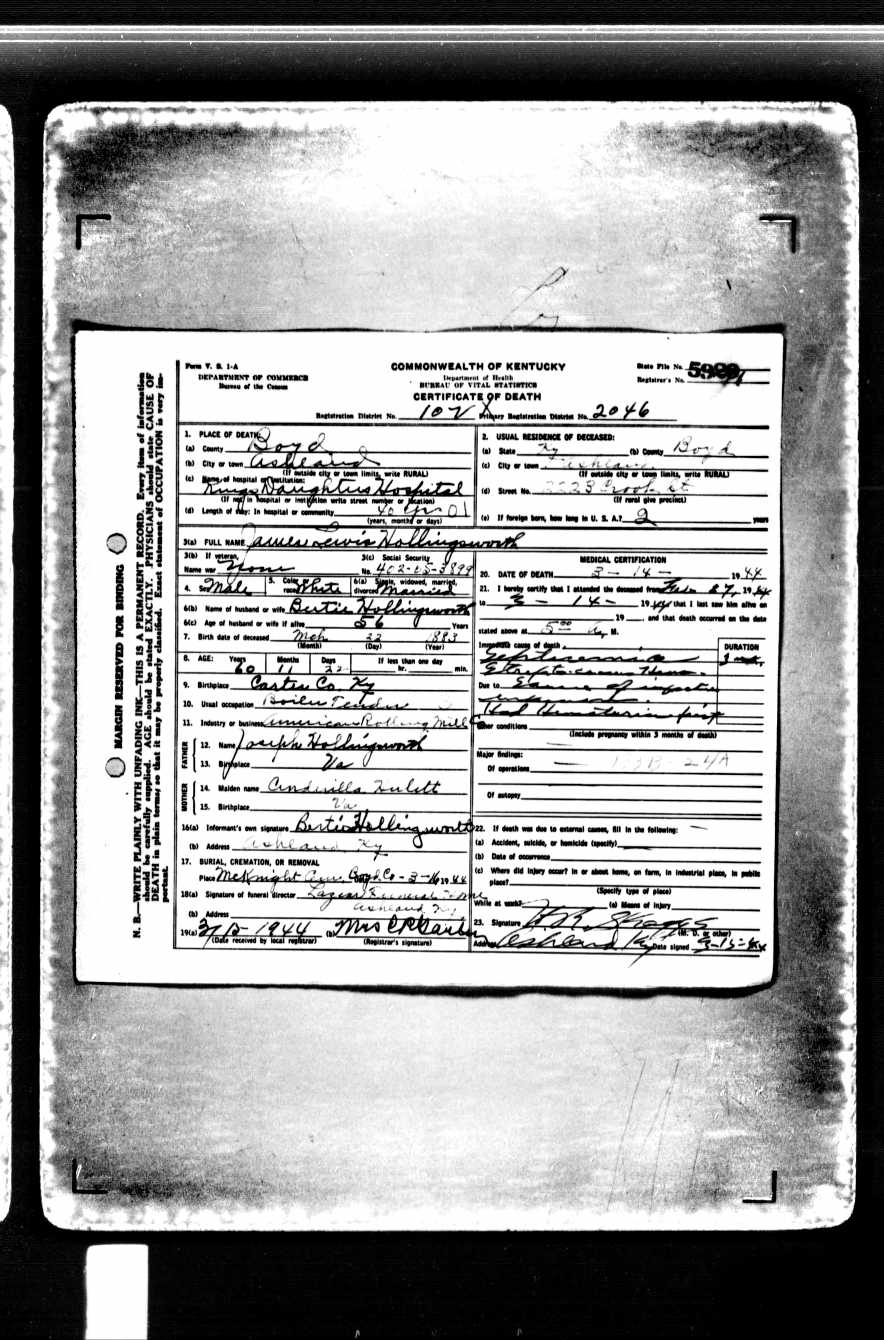 Form V. S. 1-A
DEPARTMENT OF COMMERCE
Bureau of the Census
COMMONWEALTH OF KENTUCKY
Department of Health
BUREAU OF VITAL STATISTICS
CERTIFICATE OF DEATH
State File No.
Registrar's No.
Registration District No. 10 Primary Registration District No. 2046
MARGIN RESERVED FOR BINDING
N. B.—WRITE PLAINLY WITH UNFADING INK—THIS IS A PERMANENT RECORD. Every item of information
should be carefully supplied. AGE should be stated EXACTLY. PHYSICIANS should state CAUSE OF
DEATH in plain terms; so that it may be properly classified. Exact statement of OCCUPATION is very im-
portant.
1. PLACE OF DEATH:
(a) County Boyd
(b) City or town Ashland
(If outside city or town limits, write RURAL)
(c) Name of hospital or institution:
Kings Daughters Hospital
(If not in hospital or institution write street number or location)
(d) Length of stay: In hospital or community 40 yrs
(years, months or days)
2. USUAL RESIDENCE OF DECEASED:
(a) State Ky (b) County Boyd
(c) City or town Ashland
(If outside city or town limits, write RURAL)
(d) Street No.
(If rural give precinct)
(e) If foreign born, how long in U. S. A.? years
3(a) FULL NAME James Lewis Hollingsworth
3(b) If veteran,
Name war None
3(c) Social Security
No. 402-05-3899
4. Sex Male 5. Color or race White 6(a) Single, widowed, married, divorced Married
6(b) Name of husband or wife Bertie Hollingsworth
6(c) Age of husband or wife if alive 56 Years
7. Birth date of deceased Mch 22 1883
(Month) (Day) (Year)
8. AGE: Years Months Days If less than one day
60 11 22 hr. min.
9. Birthplace Carter Co. Ky
10. Usual occupation Boiler Tender
11. Industry or business American Rolling Mill
FATHER
12. Name Joseph Hollingsworth
13. Birthplace Va
MOTHER
14. Maiden name Cinderilla Hulett
15. Birthplace Va
16(a) Informant's own signature Bertie Hollingsworth
(b) Address Ashland, Ky
17. BURIAL, CREMATION, OR REMOVAL
Place McKnight Boyd Co - 3-16 1944
18(a) Signature of funeral director Lazear Funeral Home
(b) Address Ashland Ky
19(a) 1944 (b) Mrs
(Date received by local registrar) (Registrar's signature)
MEDICAL CERTIFICATION
20. DATE OF DEATH 3 - 14 - 1944
21. I hereby certify that I attended the deceased from 19 44
to 3 - 14 - 19 44 that I last saw him alive on
19 and that death occurred on the date
stated above at 5 00 M.
Immediate cause of death DURATION
Septicemia
Due to
Had Hematuria first
Other conditions
(Include pregnancy within 3 months of death)
Major findings:
Of operations
Of autopsy
22. If death was due to external causes, fill in the following:
(a) Accident, suicide, or homicide (specify)
(b) Date of occurrence
(c) Where did injury occur? In or about home, on farm, in industrial place, in public
place?
(Specify type of place)
While at work? (e) Means of injury
23. Signature (M. D. or other)
Address Ashland, Ky Date signed 3-15-44